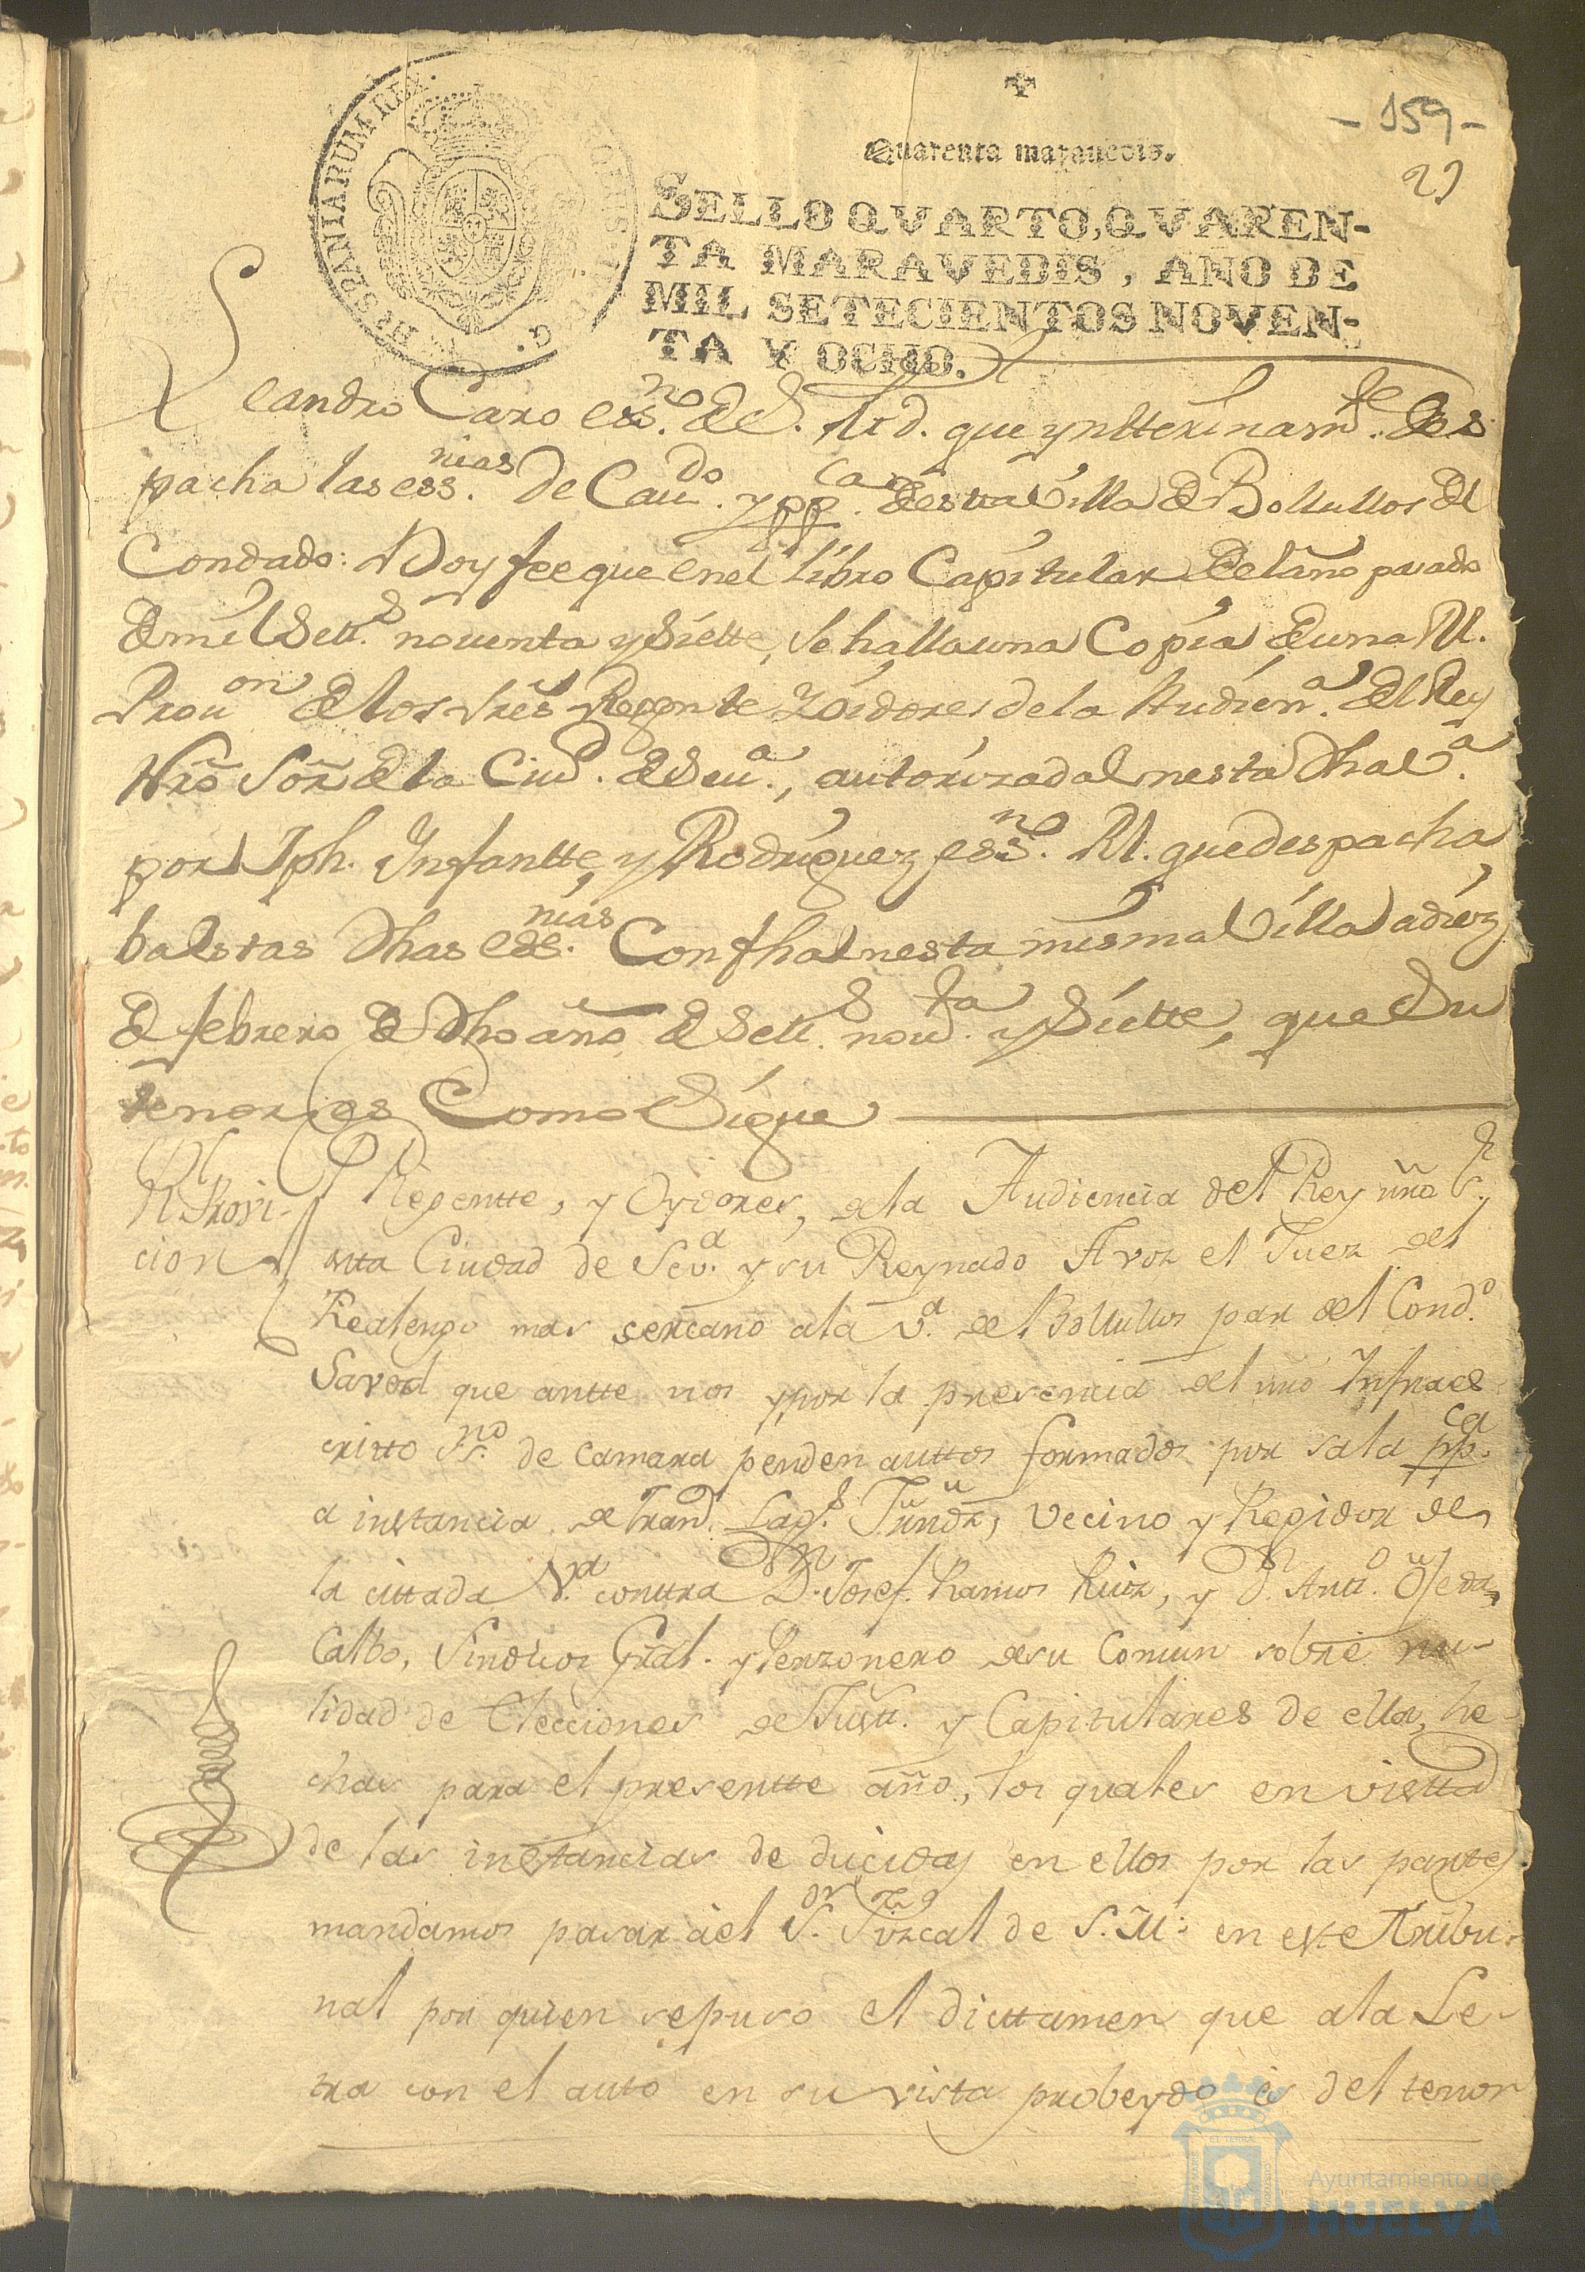 - 159 -
29
Quarenta maravedis.
SELLO QVARTO, QVAREN-
TA MARAVEDIS, AÑO DE
MIL SETECIENTOS NOVEN-
TA Y OCHO.
HISPANIARUM REX
Leandro Caro essno. de S. M. que yntterinamte. des
pacha las essnias. de Cavdo. y ppca. desta Villa de Bollullos del
Condado: Doy fee que en el libro Capitular del año pasado
de mil Setts. noventa y Siette, Se halla una Copia de una Rl.
Provon. de los Sres Regente y Oidores de la Audiena. del Rey
Nro Sor de la Ciud. de Seva., autorizada en esta dha Va.
por Jph. Infantte, y Rodriguez essno. Rl. que despacha
ba estas dhas essnias. Con fha en esta misma Villa a diez
de febrero de dho año de Setts. novta. y Siette, que Su
tenor es Como Sigue
Rl Provi-
cion
El Regentte, y Oydores, de la Audiencia del Rey nro Sr.
en esta Ciudad de Seva. y su Reynado A vos el Juez del
Realengo mas sercano a la Va. de Bollullos par del Condo.
Saved que antte nos y por la presencia del nro Infraes
critto Ssno. de camara penden auttos formados por sala ppca.
a instancia de Fran. Lags. Fernndz, Vecino y Regidor de
la cittada Va. conttra Dn. Josef. Ramos Ruiz, y Dn. Antto. Ojeda
Calbo, Sindicos Gral. y Perzonero de su Comun sobre nu-
lidad de Elecciones de Justt. y Capitulares de ella, he-
chas para el presentte año, los quales en vistta
de las instancias de ducidas en ellos por las parttes
mandamos pasar a el Sor. Fizcal de S. M. en este Tribu-
nal por quien se puso el dicttamen que a la Le-
tra con el auto en su vista probeydo es del tenor
Ayuntamiento de
HUELVA